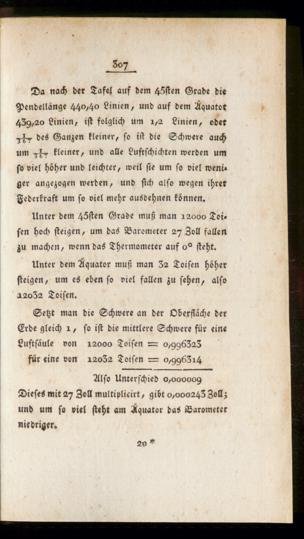 307
Da nach der Tafel auf dem 45sten Grade die
Pendellänge 440,40 Linien, und auf dem Äquator
439,20 Linien, ist folglich um 1,2 Linien, oder
1/367 des Ganzen kleiner, so ist die Schwere auch
um 1/367 kleiner, und alle Luftschichten werden um
so viel höher und leichter, weil sie um so viel weni-
ger angezogen werden, und sich also wegen ihrer
Federkraft um so viel mehr ausdehnen können.
Unter dem 45sten Grade muß man 12000 Toi-
sen hoch steigen, um das Barometer 27 Zoll fallen
zu machen, wenn das Thermometer auf 0° steht.
Unter dem Äquator muß man 32 Toisen höher
steigen, um es eben so viel fallen zu sehen, also
12032 Toisen.
Setzt man die Schwere an der Oberfläche der
Erde gleich 1, so ist die mittlere Schwere für eine
Luftsäule von 12000 Toisen = 0,996323
für eine von 12032 Toisen = 0,996314
Also Unterschied 0,000009
Dieses mit 27 Zoll multiplicirt, gibt 0,000243 Zoll;
und um so viel steht am Äquator das Barometer
niedriger.
20 *